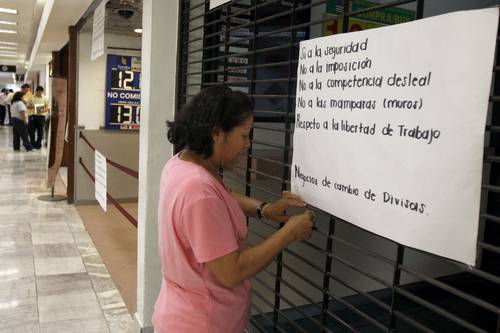 Si a la seguridad
No a la imposición
No a la competencia desleal
No a las mamparas (muros)
Respeto a la libertad de Trabajo
Negocios de cambio de Divisas.
12.
NO COMI